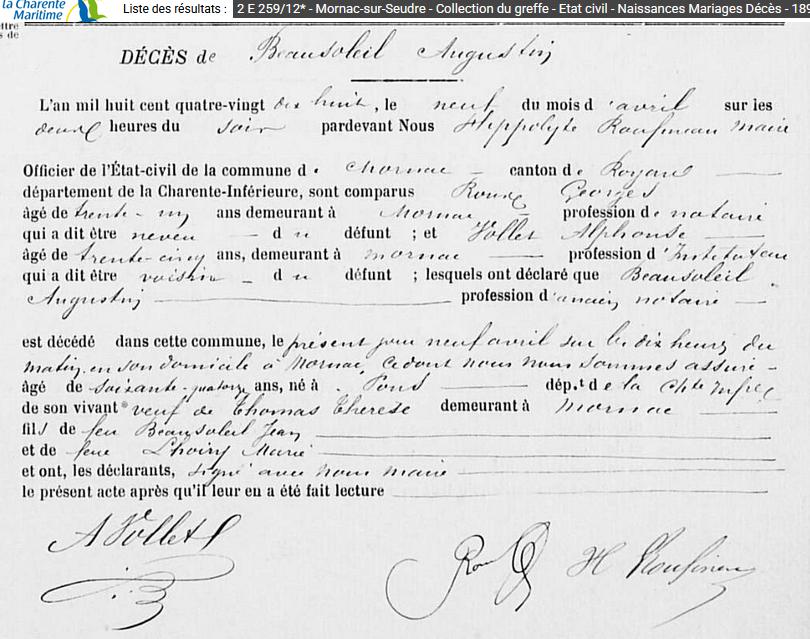 la Charente
Maritime
Liste des résultats : 2 E 259/12* - Mornac-sur-Seudre - Collection du greffe - Etat civil - Naissances Mariages Décès - 189
ttre
s de
DÉCÈS de Beausoleil Augustin
L'an mil huit cent quatre-vingt dix huit, le neuf du mois d'avril sur les
deux heures du soir pardevant Nous Hippolyte maire
Officier de l'État-civil de la commune d. Mornac canton de Royan
département de la Charente-Inférieure, sont comparus Roux Georges
âgé de trente-un ans demeurant à Mornac profession de notaire
qui a dit être neveu du défunt ; et Vollet Alphonse
âgé de trente-cinq ans, demeurant à mornac profession d'Instituteur
qui a dit être voisin du défunt ; lesquels ont déclaré que Beausoleil
Augustin profession d'ancien notaire
est décédé dans cette commune, le présent jour neuf avril sur les dix heures du
matin, en son domicile à Mornac, ce dont nous nous sommes assuré
âgé de soixante-quatorze ans, né à Pons dép.t de la Chte Infre
de son vivant veuf de Thomas Thérèse demeurant à Mornac
fils de feu Beausoleil Jean
et de feue Marie
et ont, les déclarants, signé avec nous maire
le présent acte après qu'il leur en a été fait lecture
A Vollet